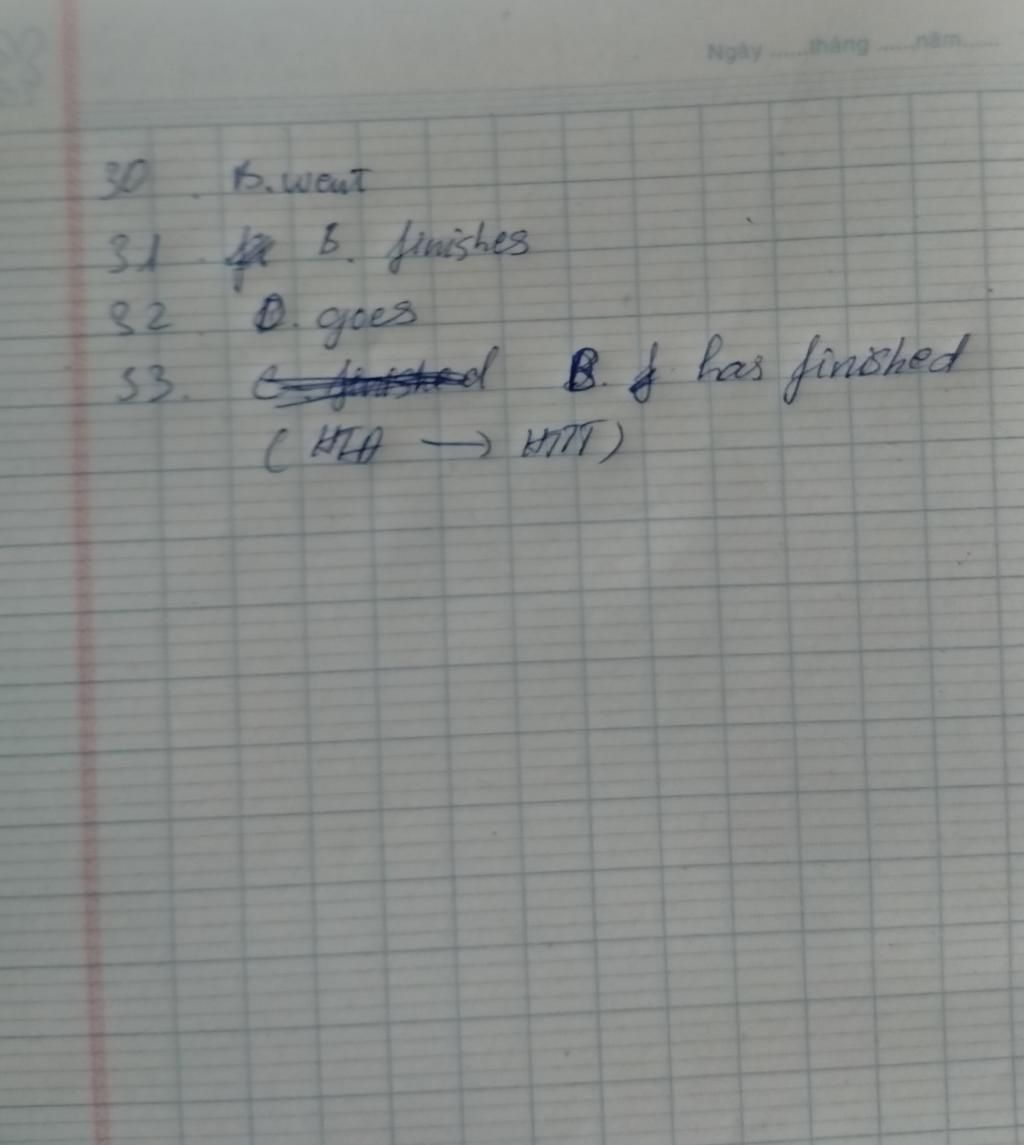 Ngày ......tháng ......năm......
30 . B. went
31 . B. finishes
32 . D. goes
33. C. finished B. has finished
(HTĐ → HTHT)